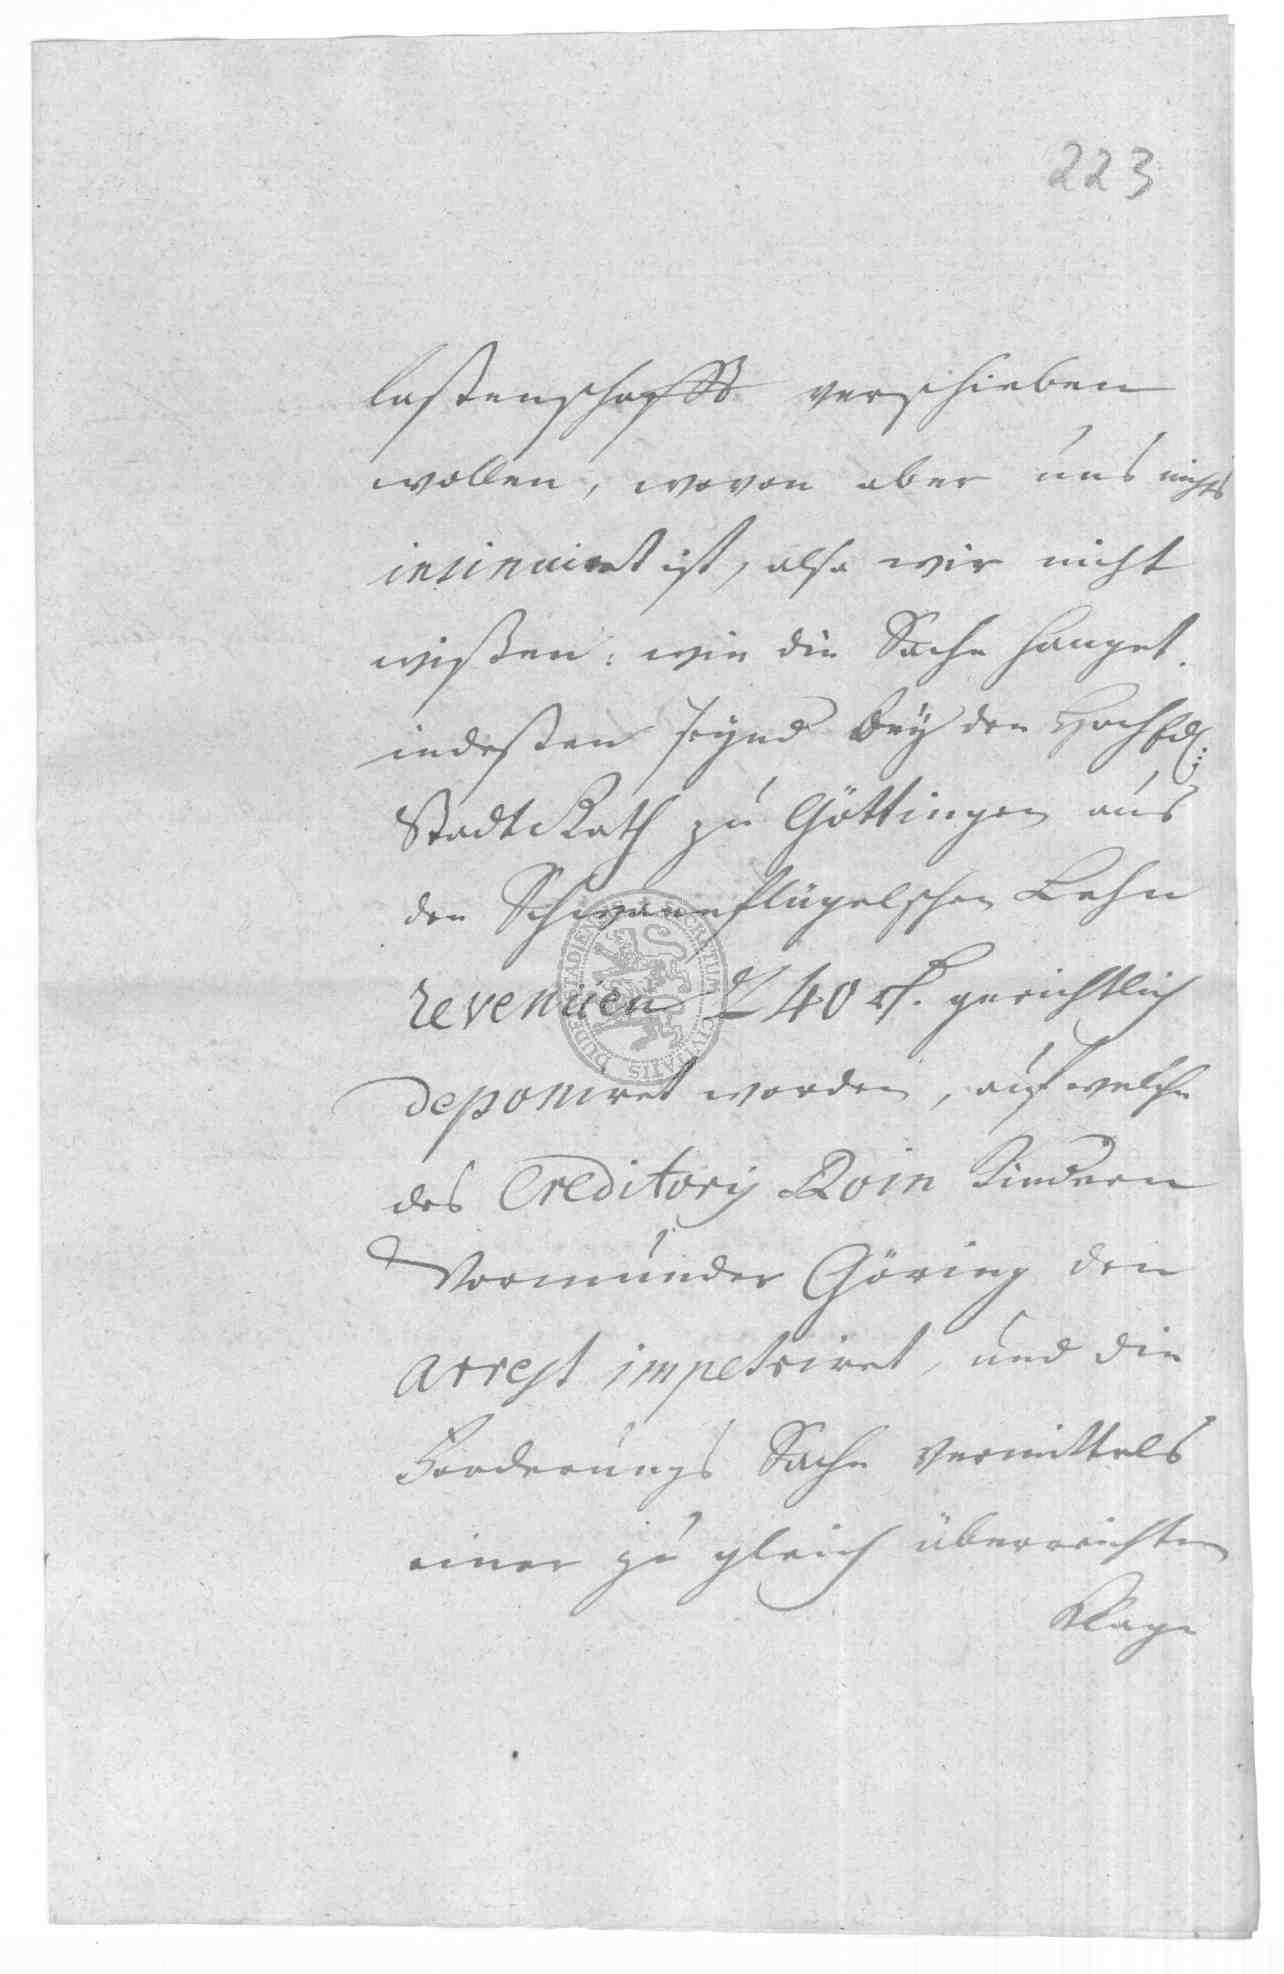 223
laßenschafft verschieben
wollen, wovon aber uns nichts
insinuiret ist, also wir nicht
wißen: wie die Sache hanget.
indeßen seynd bey den HochEdl:
Stadt Rath zu Göttingen aus
den Schwaneflügelschen Lehn
revenüen 240 rt. gerichtlich
deponiret worden, auf welche
des Creditoris Kindern
Vormünder Göring den
arrest impetriret, und die
Forderungs Sache vermittels
einer zu gleich überreichten
Klage